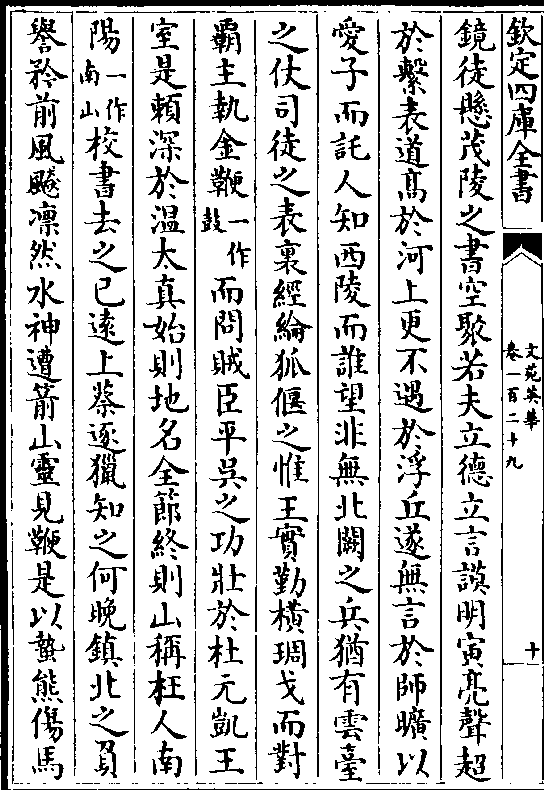 欽定四庫全書
文苑英華
卷一百二十九
十
鏡徒懸茂陵之書空聚若夫立德立言謨明寅亮聲超
於繫表道髙於河上更不遇於浮丘遂無言於師曠以
愛子而託人知西陵而誰望非無北闕之兵猶有雲臺
之仗司徒之表裏經綸狐偃之惟王實勤橫琱戈而對
霸主執金鞭一作鼓而問賊臣平吳之功壯於杜元凱王
室是賴深於温太真始則地名全節終則山稱枉人南
陽一作南山校書去之已遠上蔡逐獵知之何晚鎮北之負
譽矜前風飈凛然水神遭箭山靈見鞭是以蟄熊傷馬